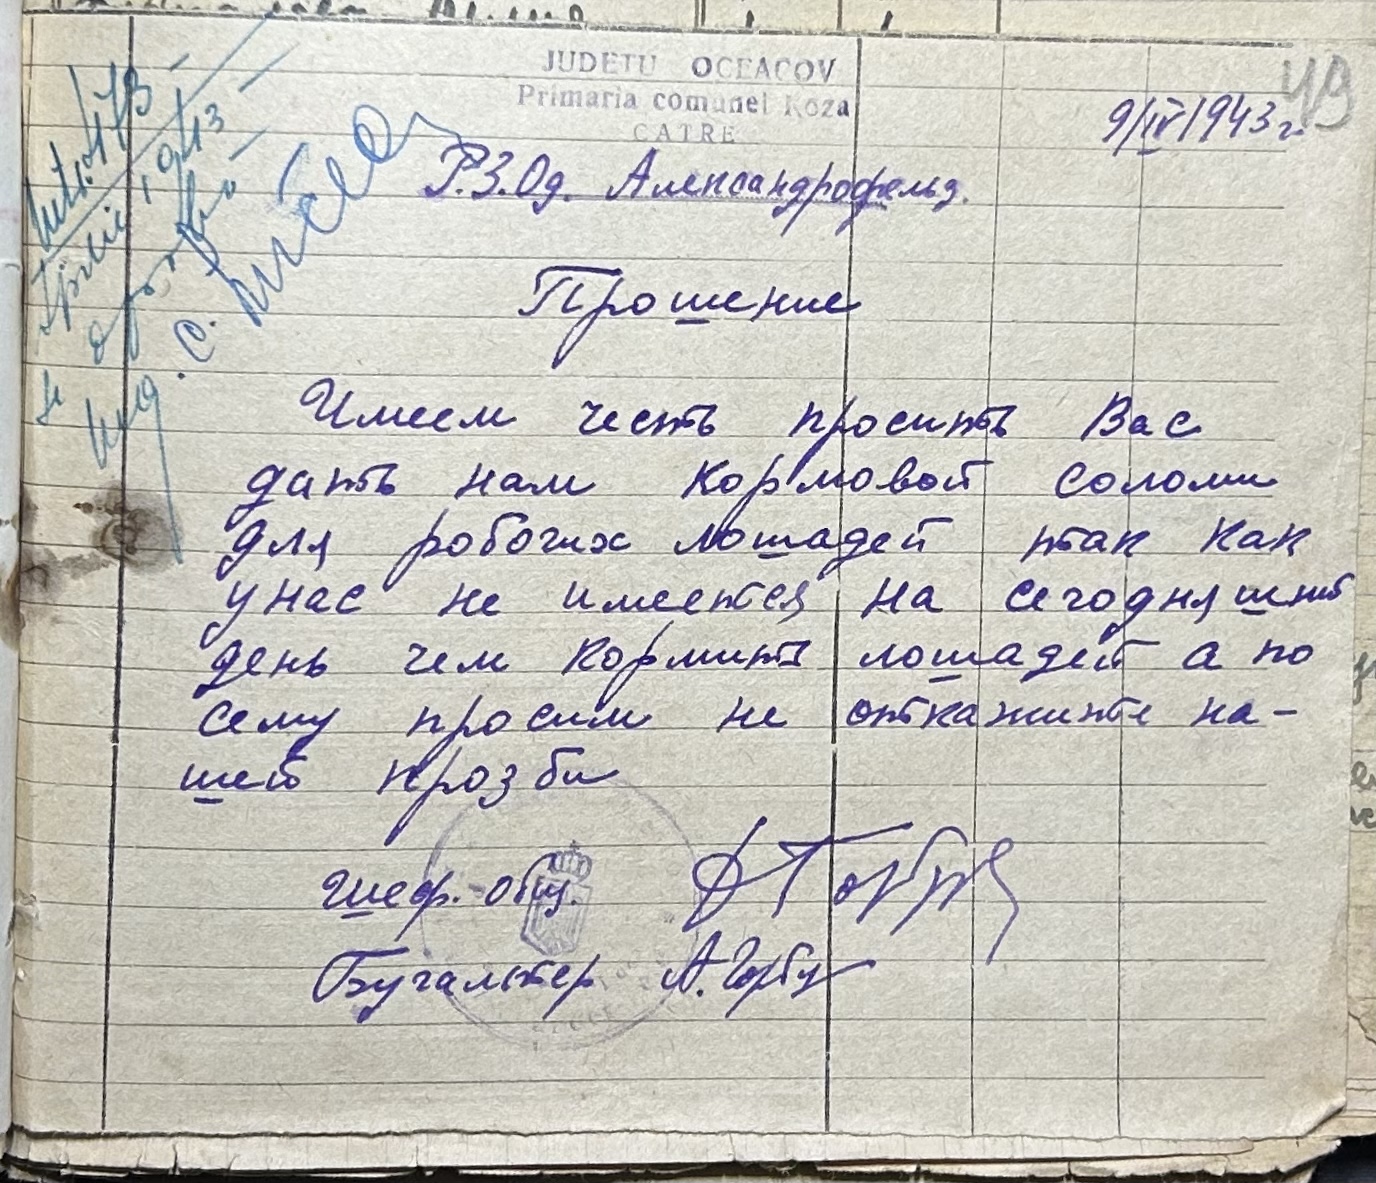 JUDETU OCEACOV
Primaria comunei Koza
CATRE
49
9/IV/1943 г.
Р.З.Од. Александрофельд.
Прошение
Имеем честь просить Вас
дать нам кормовой соломи
для робочих лошадей так как
унас не имеется на сегодняшний
день чем кормить лошадей а по
сему просим не откажите на-
шей прозби
Шеф. общ.
Бугальтер А. Горбу